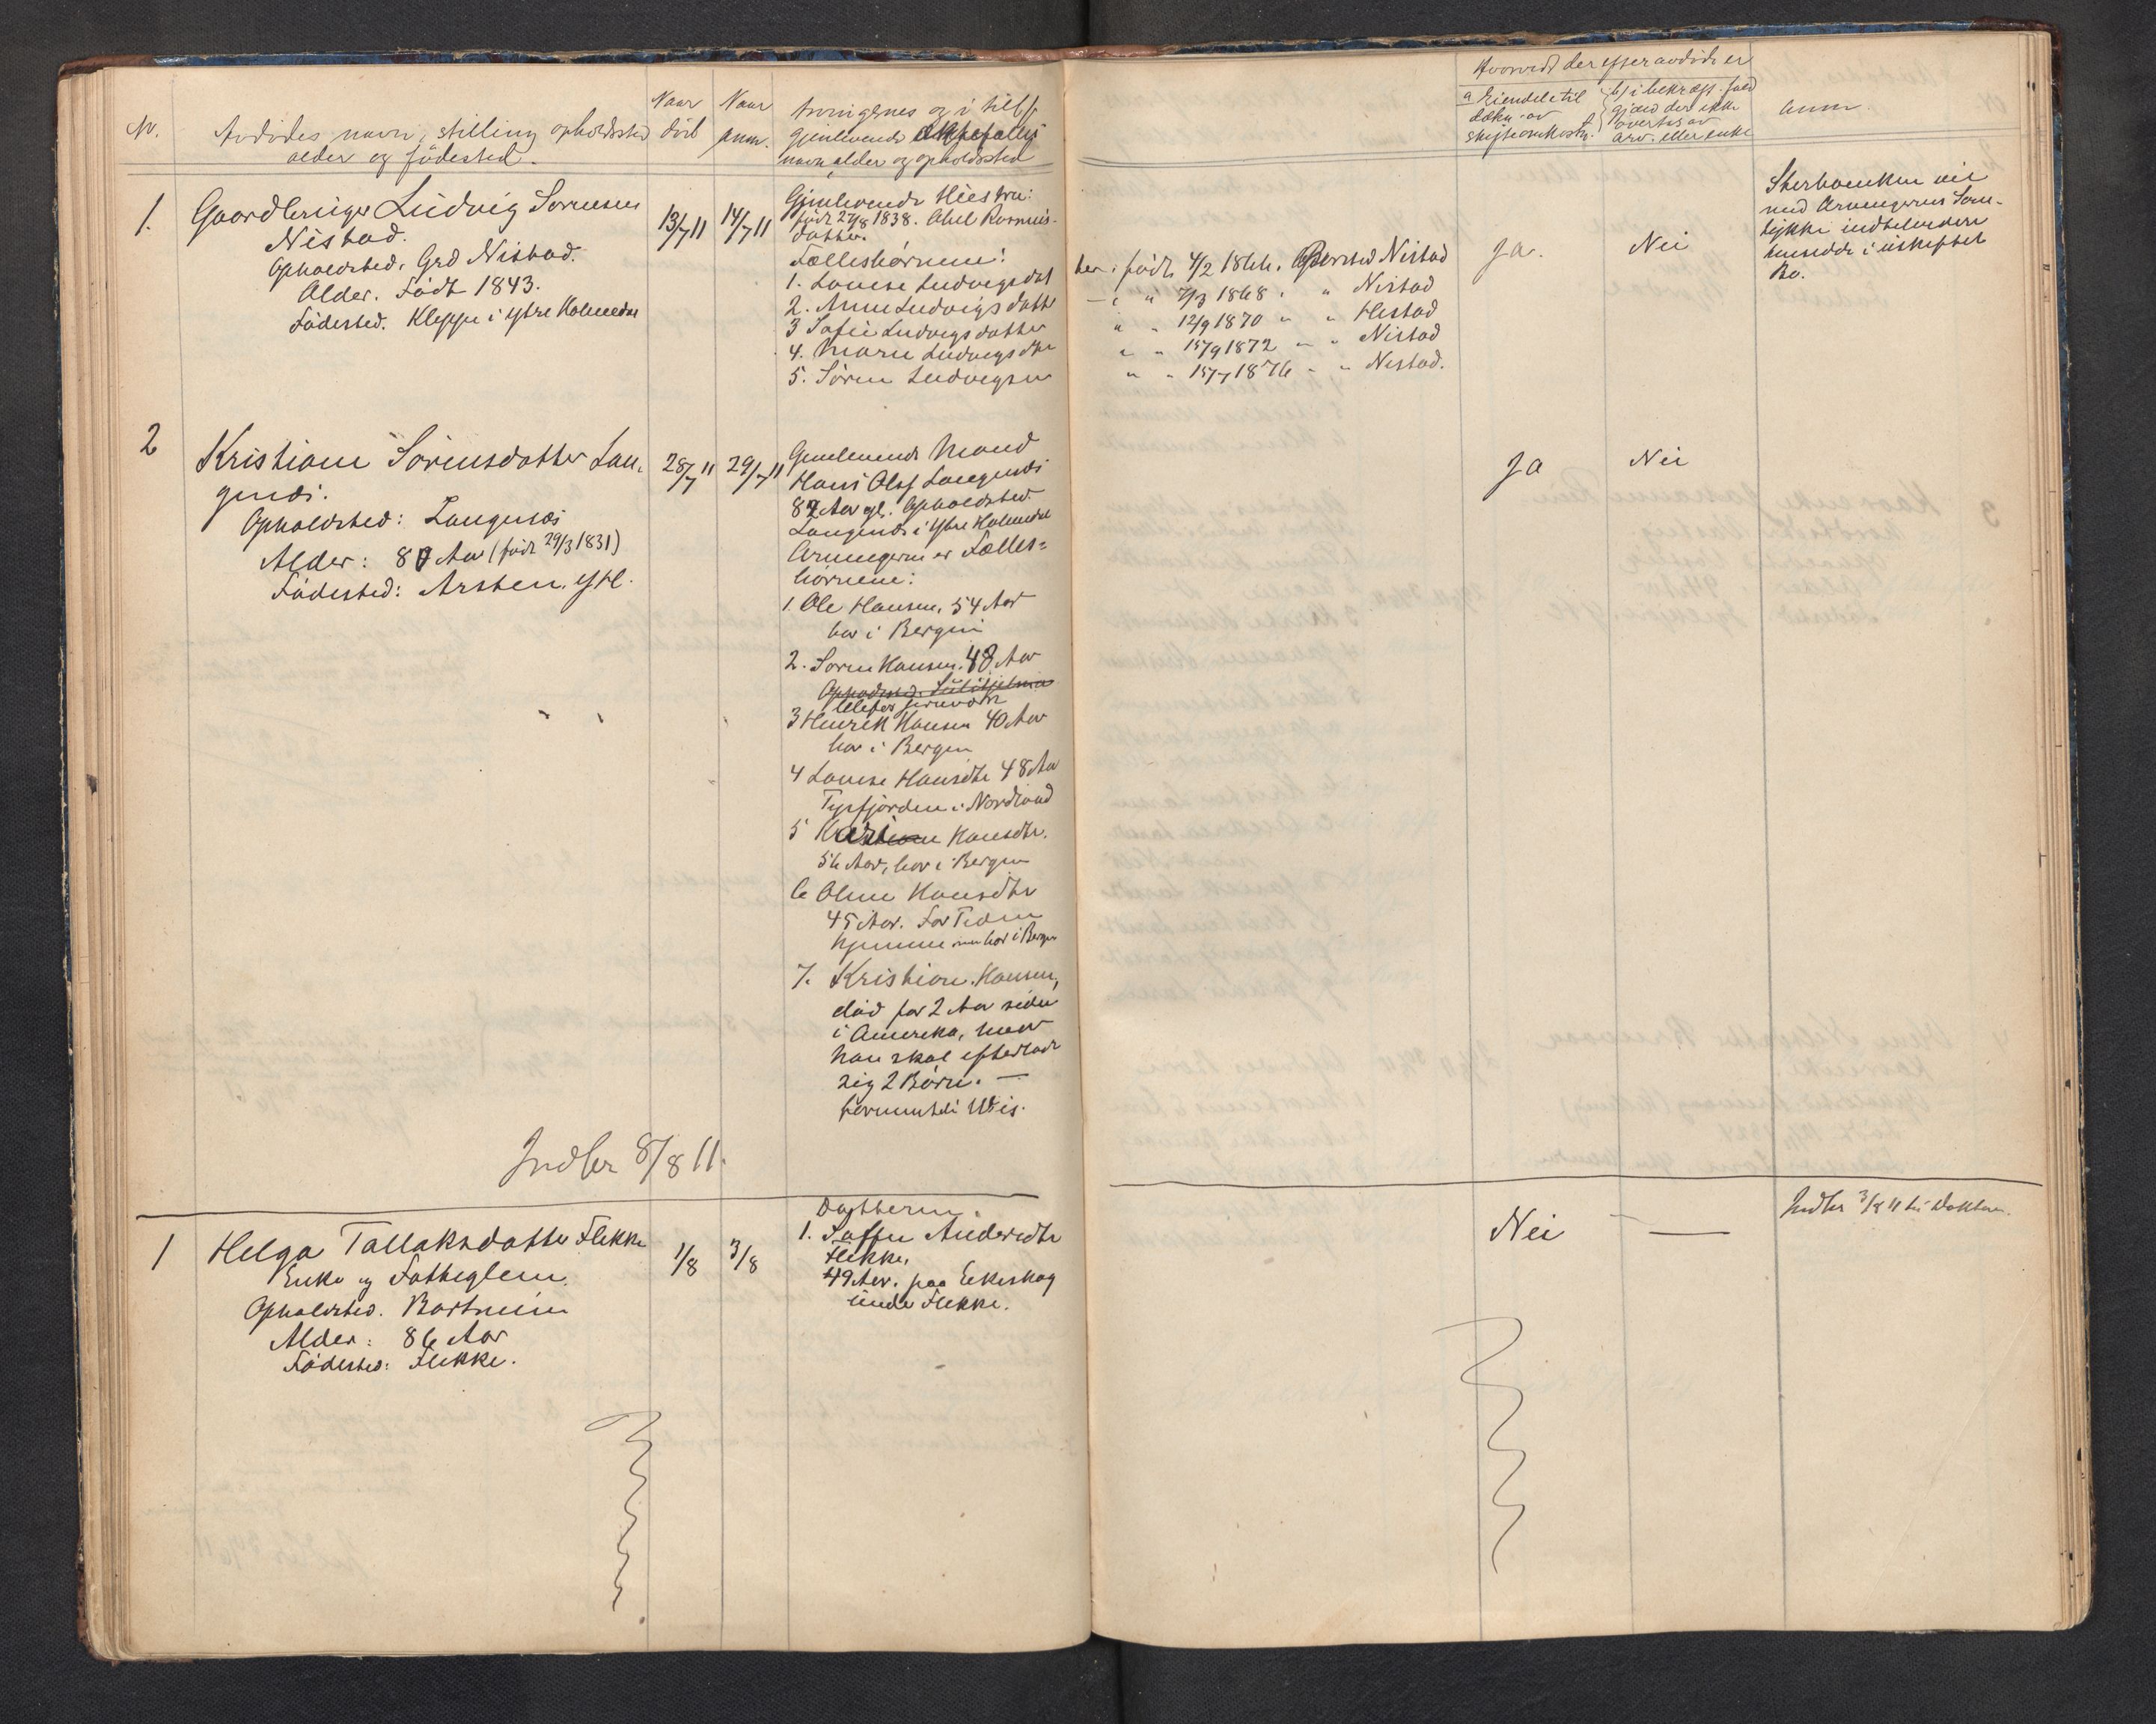 No.
Avdödes navn, stilling opholdssted
alder og födested.
Naar
död
Naar
anm.
Arvingernes og i tilf.
gjenlevende ektefælles
navn, alder og opholdssted
Hvorvidt der efter avdöde er
a Eiendele til
dækn. av
skifteomkostn.
b) i bekræft. fald
gjæld der ikke
overtas av
arv. eller enke
Anm.
1.
Gaardbruger Ludvig Sørensen
Nistad.
Opholdsted. Grd Nistad.
Alder. Födt 1843.
Födested. Kleppe i Ytre Holmedal
13/7 11
14/7 11
Gjenlevende Hustru:
född 27/8 1838. Abel Rasmus-
datter.
Fællesbørnene:
1. Lovise Ludvigsdat
2. Anne Ludvigsdatte
3 Sofie Ludvigsdatter
4. Marie Ludvigsdtr
5. Sören Ludvigsen
ter. født 4/2 1866. Opholdsted Nistad
" 7/3 1868 " Nistad
" " 12/9 1870 " " Hestad
" " 15/9 1872 " " Nistad
" " 15/7 1876 " " Nistad.
Ja.
Nei
Sterboenken vil
med Arvingernes Sam-
tykke indtil videre
hensidde i uskiftet
Bo.
2
Kristiane Sörensdatter Lan-
genæs.
Opholdsted: Langenæs
Alder: 80 Aar (född 29/3 1831)
Födested: Arsten. YH.
28/7 11
29/7 11
Gjenlevende Mand
Hans Olsf Langenæs
82 Aar gl. Opholdsted
Langenæs i Ytre Holmedal
Arvingerne er Fælles-
börnene:
1. Ole Hansen, 54 Aar
bor i Bergen
2. Sören Hansen. 48 Aar
Opholdsted. Sulitjelma
Ulefos jernværk
3 Henrik Hansen 40 Aar
bor i Bergen
4 Lovise Hansdtr 48 Aar
Tysfjorden i Nordland
5 Kari Hansdtr.
56 Aar, bor i Bergen
6 Oline Hansdtr
45 Aar. For Tiden
hjemme men bor i Bergen
7. Kristian Hansen,
död for 2 Aar siden
i Amerika, men
han skal efterladt
sig 2 Børn. —
formentli Wis.
Ja
Nei
Indber 8/8 11.
1
Helga Tallaksdatter Flekke
Enke og Fattiglem.
Opholdsted. Bortneim
Alder: 86 Aar
Födested: Flekke.
1/8
3/8
Datteren.
1. Andersdtr
Flekke.
49 Aar. paa Eikeskog
under Flekke.
Nei
—
Indber 3/8 11 til